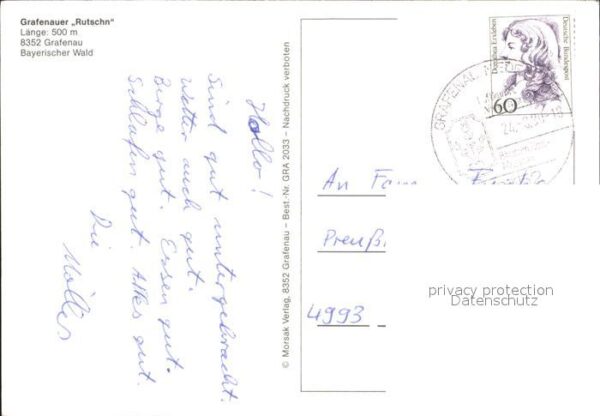 Grafenauer „Rutschn“
Länge: 500 m
8352 Grafenau
Bayerischer Wald
Hallo!
Sind gut untergebracht.
Wetter auch gut.
Berge gut. Essen gut.
Schlafen gut. Alles gut.
Die
Müllers
© Morsak Verlag, 8352 Grafenau – Best.-Nr. GRA 2033 – Nachdruck verboten
Dorothea Erxleben
Deutsche Bundespost
60
GRAFENAU
An Fam
Preuß
4993
privacy protection
Datenschutz